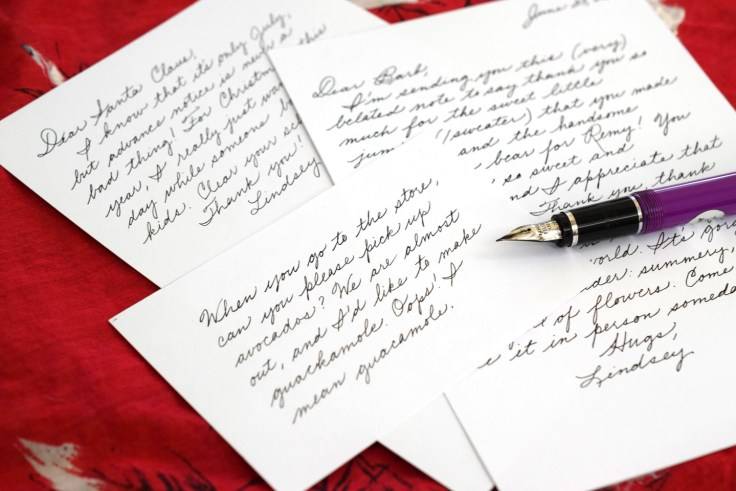 Dear Santa Claus,
I know that it's only July,
but advance notice is never a
bad thing! For Christmas this
year, I really just wa
day while someone
kids. Clear your
Thank you!
Lindsey
June
Dear Barb,
I'm sending you this (very)
belated note to say thank you so
much for the sweet little
(sweater) that you made
and the handsome
bear for Remy! You
so sweet and
nd I appreciate that
Thank you, thank
orld. It's gor
der: summery,
of flowers. Come
it in person someda
Hugs,
Lindsey
When you go to the store,
can you please pick up
avocados? We are almost
out, and I'd like to make
guackamole. Oops! I
mean guacamole.